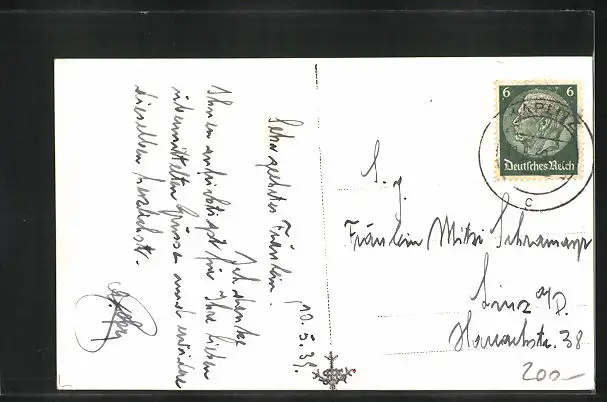 Sehr geehrtes Fräulein!
Ich danke
Ihnen aufrichtigst für Ihre lieben
übermittelten Grüsse und erwidere
dieselben herzlichst.
10.5.39.
S. g.
Fräulein Mitzi Schramayr
Linz a/D.
38
200-
6 6
Deutsches Reich
KAPLITZ
c